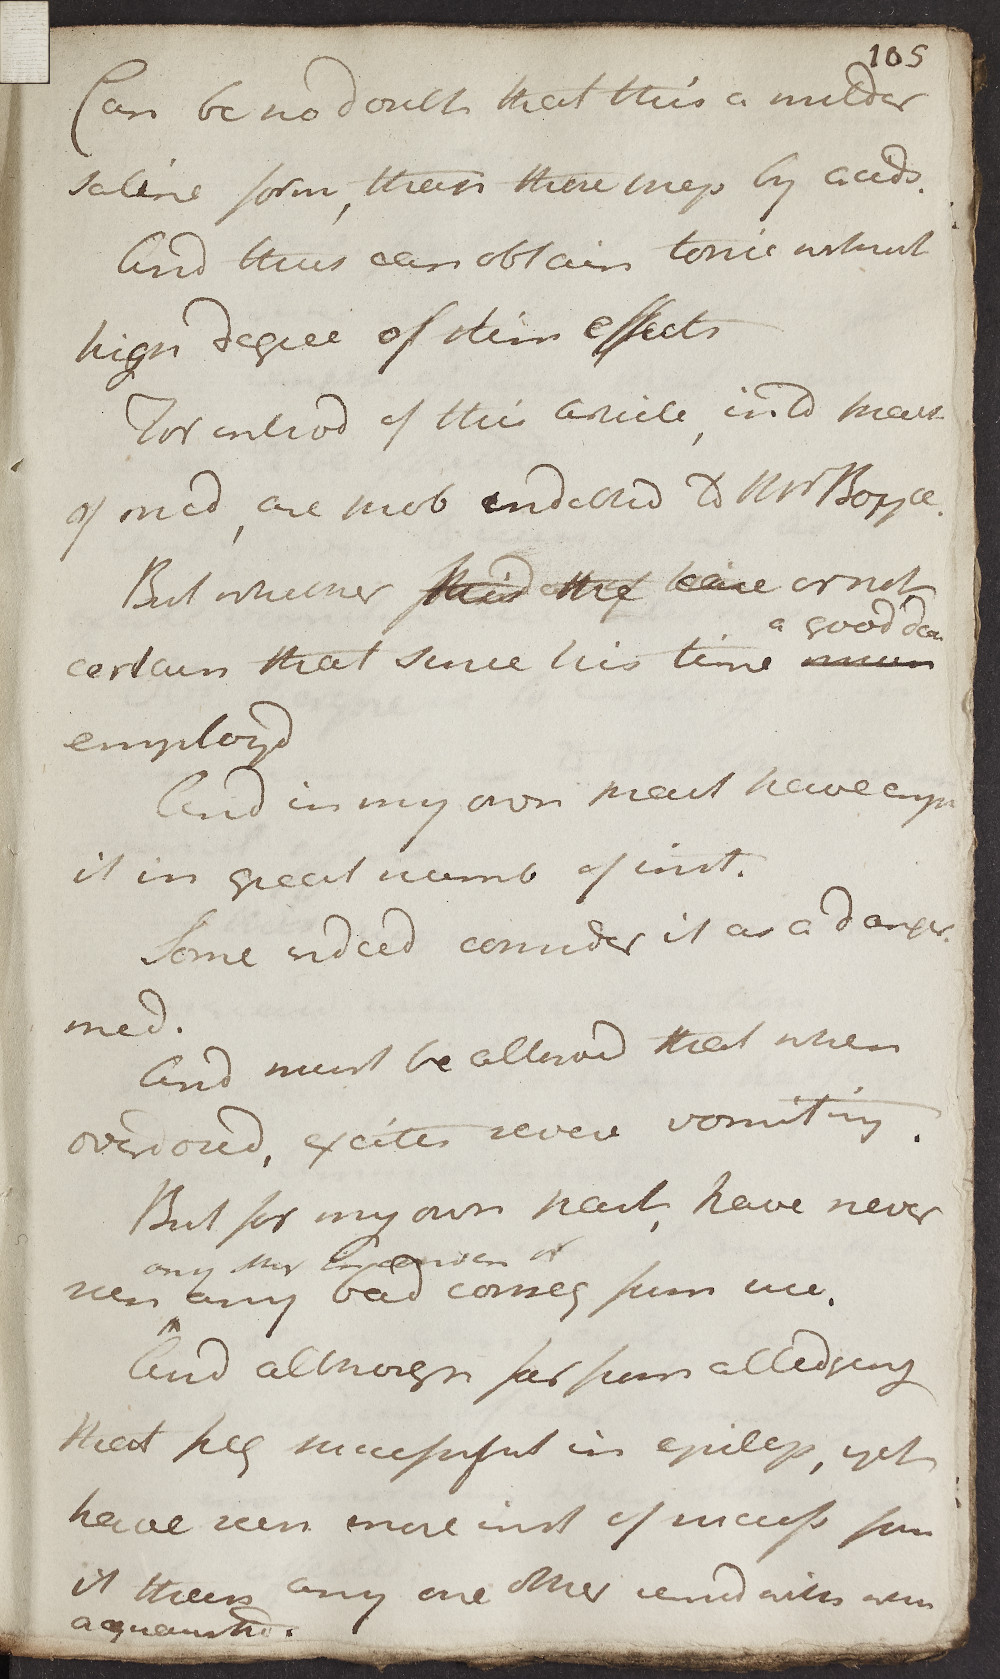 105
Can be no doubt that this a milder
saline form, than those prep by acids.
And thus can obtain tonic without
high degree of stim effects
For introd of this article, into pract
of med, are prob indebted to Mr Boyle.
But whether this or not,
a good dea
certain that since his time
employd
And in my own pract have emp
it in great numb of inst.
Some indeed consider it as a danger.
med.
And must be allowed that when
overdosed, excites severe vomiting.
But for my own part, have never
any other or
seen any bad conseq from use.
And although far from alledging
that freq successful in epilep, yet
have seen more inst of success from
it than any one other remed with whh
acquainted.